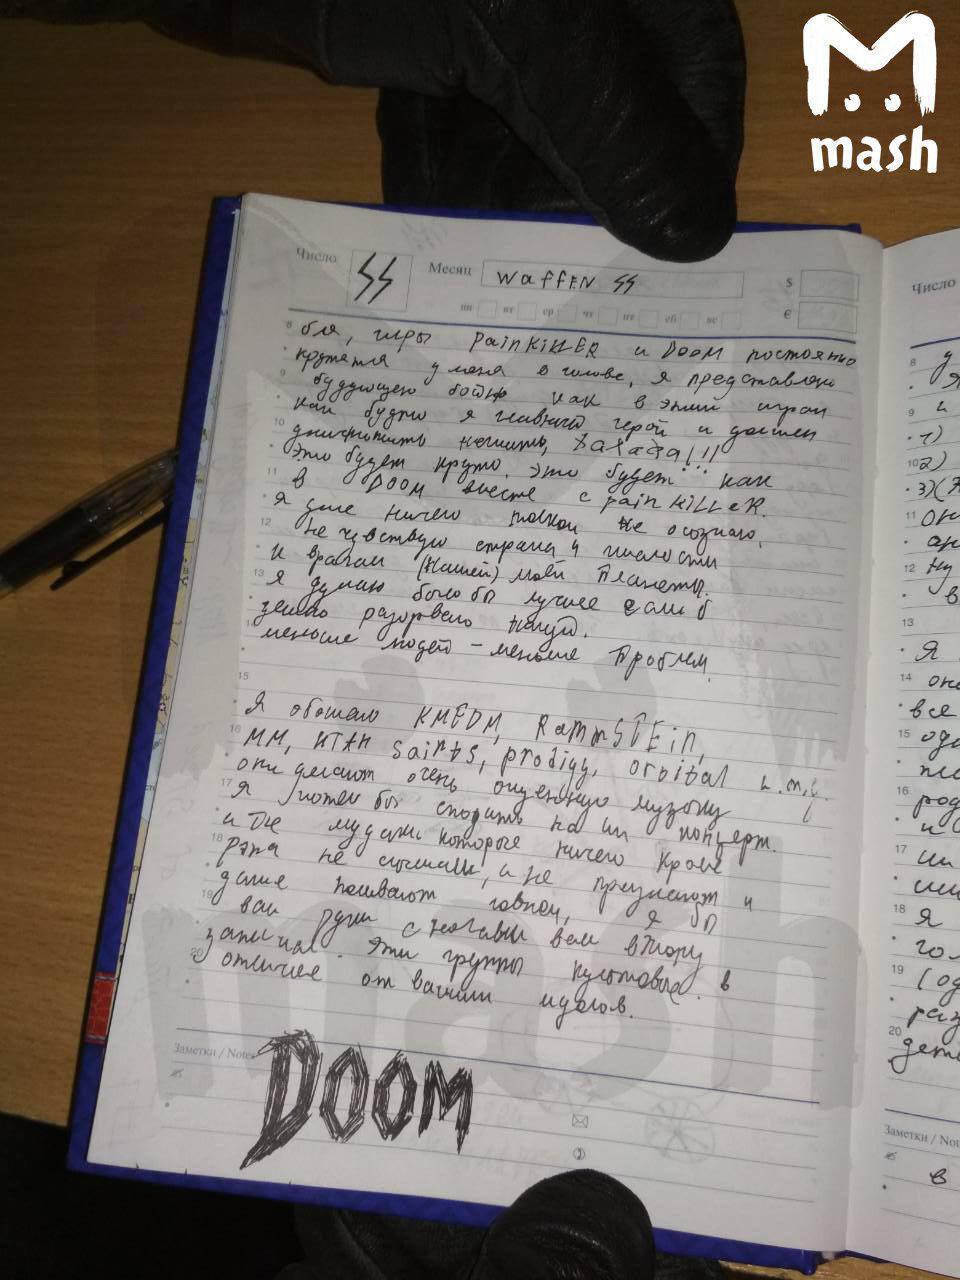 mash
Число
Месяц
Waffen
$
€
пн вт ср чт пт сб вс
8 бля, игры PainKiLLER и DOOM постоянно
крутятся у меня в голове, я представляю
9 будующею бойню как в этих играх
как будто я главный герой и должен
10 нечисть, Хахаха!!!
это будет круто. это будет как
11 в DOOM вместе с PainKiLLeR.
я уже ничего не осознаю,
12 не чувствую страха и жалости
к врагам (нашей) моей Планеты.
13 я думаю было бы лучше если б
землю разорвало
14 меньше людей – меньше Проблем.
15
Я обожаю KMFDM, RammSTEin,
16 MM, saints, prodigy, orbital и.т.д.
они делают очень музыку
17 я хотел бы сходить на их концерт.
а те мудаки которые ничего кроме
18 рэпа не слышали, и не признают и
даже называют говном, я бы
19 вам руки с ногами
20 Эти группы культовые. в
отличие от ваших идолов.
Заметки / Notes
DOOM
Число
8 у
Я
9 и
1)
10 2)
3)
11 он
12 ну
в
13
Я
14 она
все
15
16 род
и
17 им
18 Я
19
20 дет
Заметки / No
в